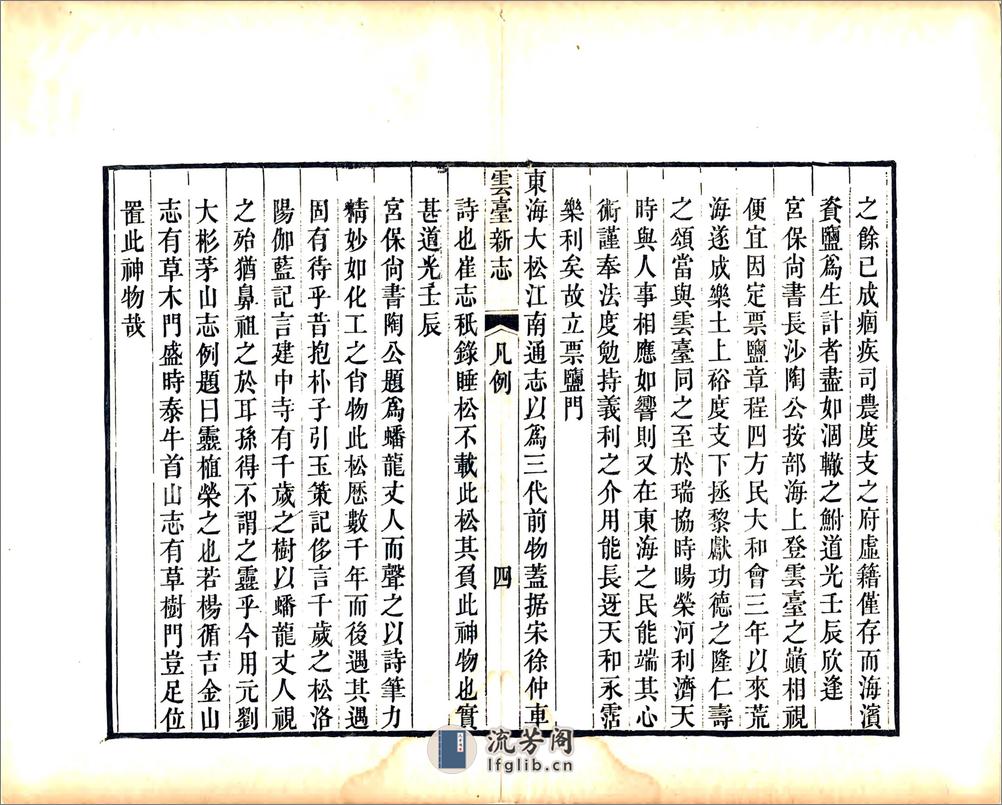 之餘已成痼疾司農度支之府虛籍僅存而海濱
賚鹽爲生計者盡如涸轍之鮒道光壬辰欣逢
宮保尚書長沙陶公按部海上登雲臺之巔相視
便宜因定票鹽章程四方民大和會三年以來荒
海遂成樂土上裕度支下拯黎獻功德之隆仁壽
之頌當與雲臺同之至於瑞協時暘榮河利濟天
時與人事相應如響則又在東海之民能端其心
術謹奉法度勉持義利之介用能長迓天和永霑
樂利矣故立票鹽門
東海大松江南通志以爲三代前物蓋据宋徐仲車
雲臺新志
凡例
四
詩也崔志秖錄睡松不載此松其負此神物也實
甚道光壬辰
宮保尚書陶公題爲蟠龍丈人而聲之以詩筆力
精妙如化工之肖物此松歷數千年而後遇其遇
固有待乎昔抱朴子引玉策記侈言千歲之松洛
陽伽藍記言建中寺有千歲之樹以蟠龍丈人視
之殆猶鼻祖之於耳孫得不謂之靈乎今用元劉
大彬茅山志例題曰靈植榮之也若楊循吉金山
志有草木門盛時泰牛首山志有草樹門豈足位
置此神物哉
流芳阁
lfglib.cn